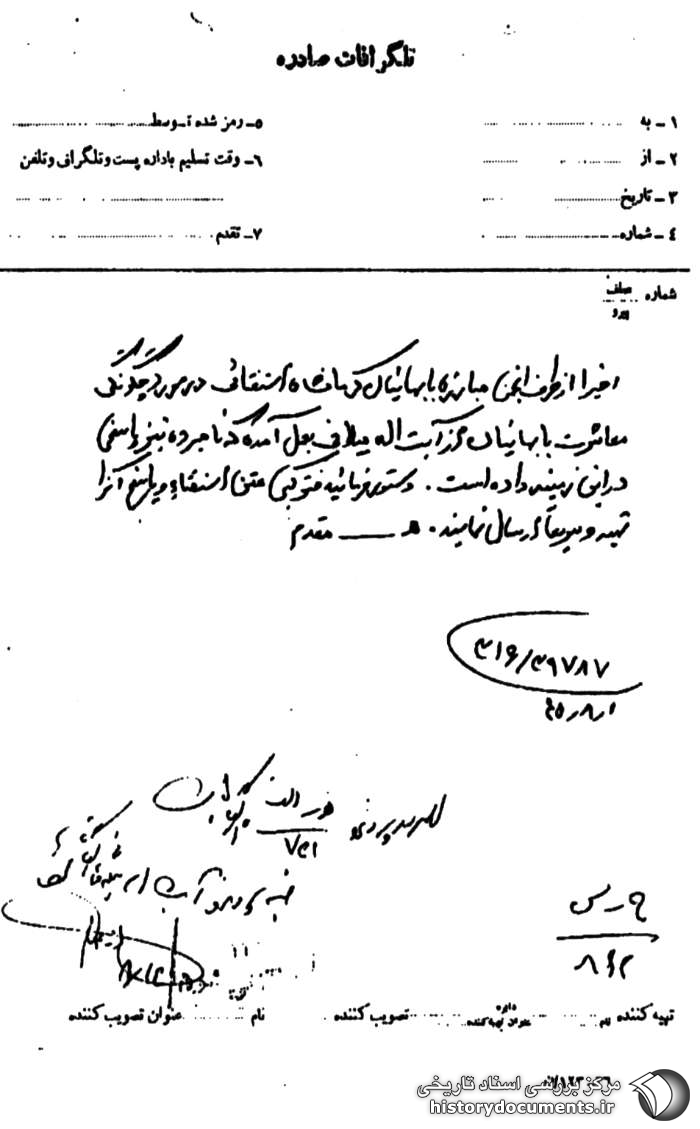 تلگرافات صادره
۱ـ به
۵ـ رمز شده توسط
۲ـ از
۶ـ وقت تسلیم باداره پست و تلگراف و تلفن
۳ـ تاریخ
۴ـ شماره
۷ـ تقدم
شماره عطف
پیرو
اخیرا از طرف انجمن مبارزه با بهائیان کرمانشاه استفتائی در مورد چگونگی
معاشرت با بهائیان از آیت اله میلانی بعمل آمده که نامبرده نیز پاسخی
در این زمینه داده است. دستور فرمائید فتوکپی متن استفتاء و پاسخ آنرا
تهیه و سریعاً ارسال نمایند. ه ـــ مقدم
۳۱۶/۳۹۷۸۷
۴۵٫۸٫۱
۷۳۱
ضمیمه پرونده آیت اله
۸۶۲
تهیه کننده نام
عنوان تهیه کننده
تصویب کننده
نام
عنوان تصویب کننده
مرکز بررسی اسناد تاریخی
historydocuments.ir